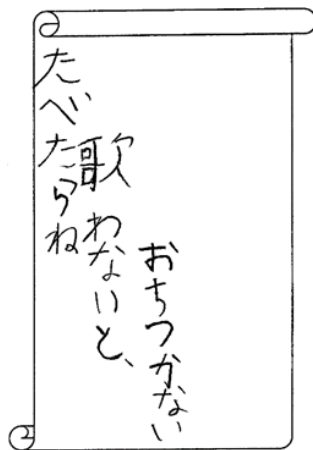 たべたらね
歌わないと、
おちつかない